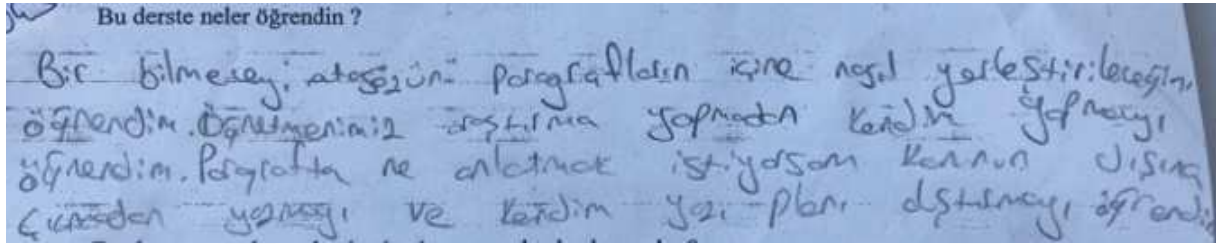 Bu derste neler öğrendin ?
Bir bilmeceyi atasözünü paragrafların içine nasıl yerleştirileceğini
öğrendim. Öğretmenimiz araştırma yapmadan kendim yapmayı
öğrendim. Paragrafta ne anlatmak istiyorsam konunun dışına
çıkmadan yazmayı ve kendim yazı planı oluşturmayı öğrendi